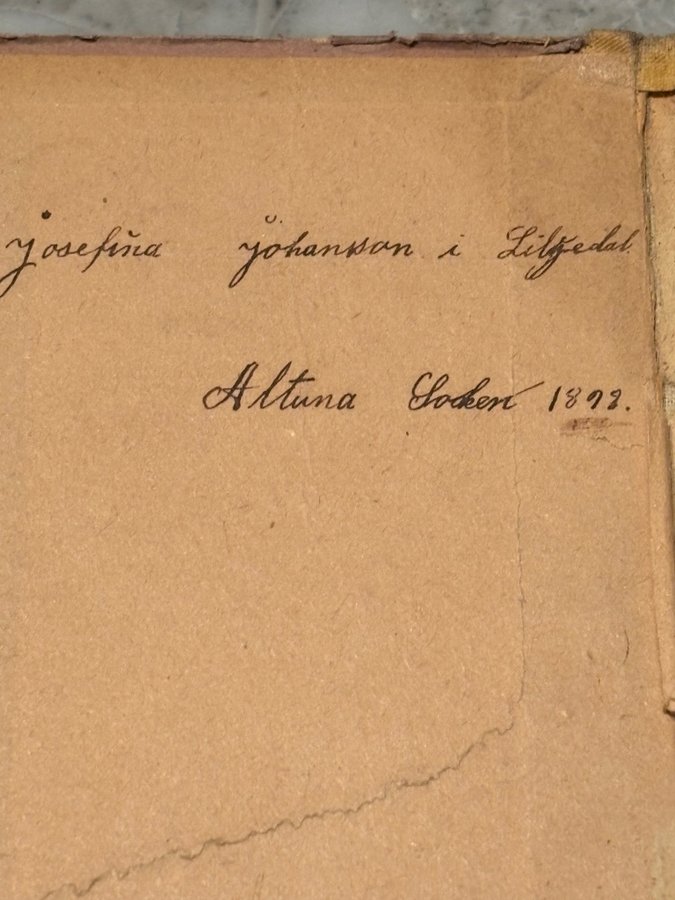 Josefina Johanson i Liljedal
Altuna Socken 1898.